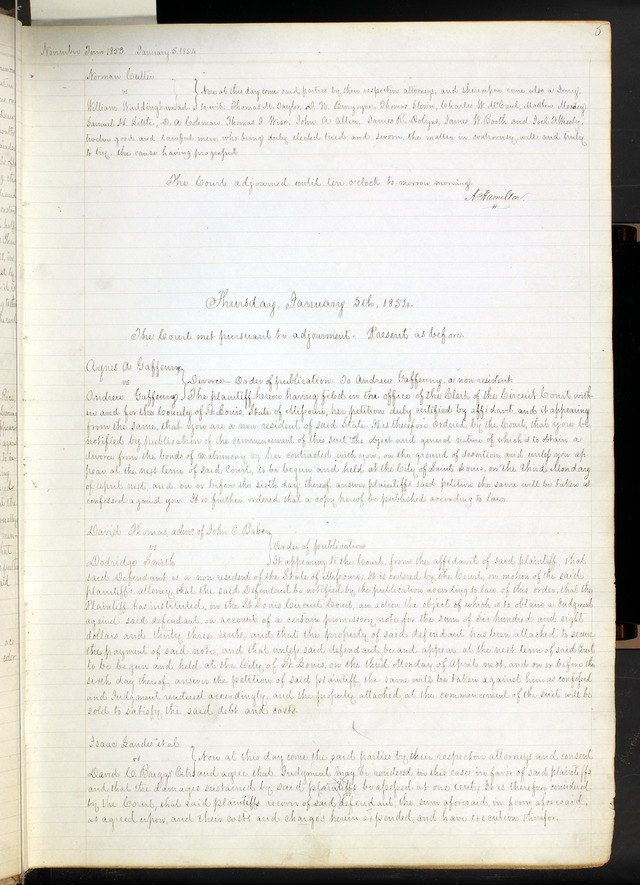 5
November Term 1853. January 5. 1854
Norman Cutter
vs
Now at this day come said parties by their respective attorneys, and thereupon come also a Jury,
William Waddingham et al. to wit: Thomas M. Taylor, Thomas Slevin, Charles W. McCord, Matthew
Samuel H. Little, D. A. Coleman, Thomas J. Wise, John A. Allen, James R. James W. Booth and Joel
twelve good and lawful men, who being duly elected tried and sworn, the matter in controversy well and truly
to try. the cause having progressed
The Court adjourned until ten o'clock to-morrow morning.
A. Hamilton
Thursday, January 5th, 1854.
The Court met pursuant to adjournment. Present as before.
Agnes A Gaffenny
vs
Divorce - Order of publication. To Andrew Gaffenny, a non resident
Andrew Gaffenny The plaintiff herein having filed in the office of the Clerk of the Circuit Court, with-
in and for the County of St. Louis, State of Missouri, her petition duly certified by affidavit, and it appearing
from the same, that you are a non resident of said State. It is therefore ordered by the Court, that you be
notified by publication of the commencement of this suit the object and general nature of which is to obtain a
divorce from the bonds of matrimony by her contracted with you, on the ground of desertion, and unless you ap-
pear at the next term of said Court, to be begun and held at the City of Saint Louis, on the third Monday
of April next and on or before the sixth day thereof answer plaintiff's said petition the same will be taken as
confessed against you. It is further ordered that a copy hereof be published according to law.
David Thomas, admr of John C. Baber
vs
Order of publication
Dodridge
It appearing to the Court, from the affidavit of said plaintiff, that
said Defendant is a non resident of the State of Missouri. It is ordered by the Court, on motion of the said
plaintiff's attorney, that the said Defendant be notified by the publication according to law of this order, that the
Plaintiff has instituted, in the St Louis Circuit Court an action the object of which is to obtain a Judgment
against said defendant, on account of a certain promissory note, for the sum of six hundred and eight
dollars and thirty three cents, and that the property of said defendant has been attached to secure
the payment of said note, and that unless said defendant, be and appear at the next term of said Court
to be begun and held at the City of St Louis, on the third Monday of April next, and on or before the
sixth day thereof, answer the petition of said plaintiff, the same will be taken against him as confessed
and Judgment rendered accordingly, and the property attached at the commencement of the suit will be
sold to satisfy the said debt and costs.
Isaac Landes et al
vs
Now at this day come the said parties by their respective attorneys and consent
David C. Baggs and agree that Judgment may be rendered in this case in favor of said plaintiffs
and that the damages sustained by said plaintiffs be assessed at one cent; It is therefore considered
by the Court, that said plaintiffs recover of said defendant, the sum aforesaid, in form aforesaid,
as agreed upon, and their costs and charges herein expended, and have execution therefor.